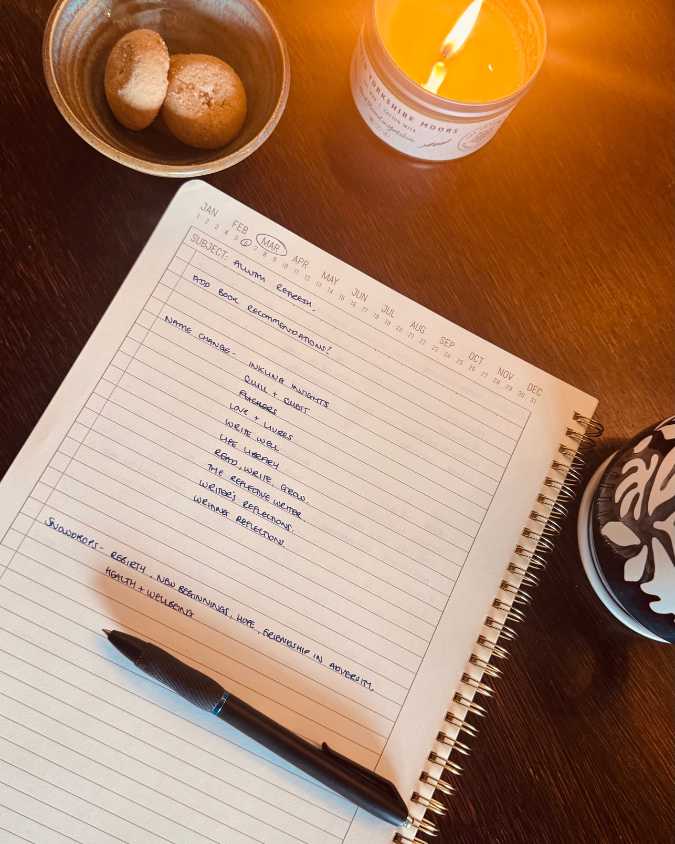 YORKSHIRE MOORS
JAN FEB MAR APR MAY JUN JUL AUG SEP OCT NOV DEC
1 2 3 4 5 6 7 8 9 10 11 12 13 14 15 16 17 18 19 20 21 22 23 24 25 26 27 28 29 30 31
SUBJECT: REFRESH.
ADD BOOK RECOMMENDATIONS?
NAME CHANGE - INKLING INSIGHTS
QUILL + QUEST
LOVE + LIVRES
WRITE WELL
LIFE LIBRARY
READ, WRITE, GROW.
THE REFLECTIVE WRITER.
WRITER'S REFLECTIONS.
WRITING REFLECTIONS.
SNOWDROPS - REBIRTH, NEW BEGINNINGS, HOPE, FRIENDSHIP IN ADVERSITY,
HEALTH + WELLBEING